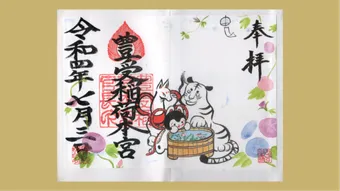 奉拝
豊受稲荷本宮
令和四年七月三日